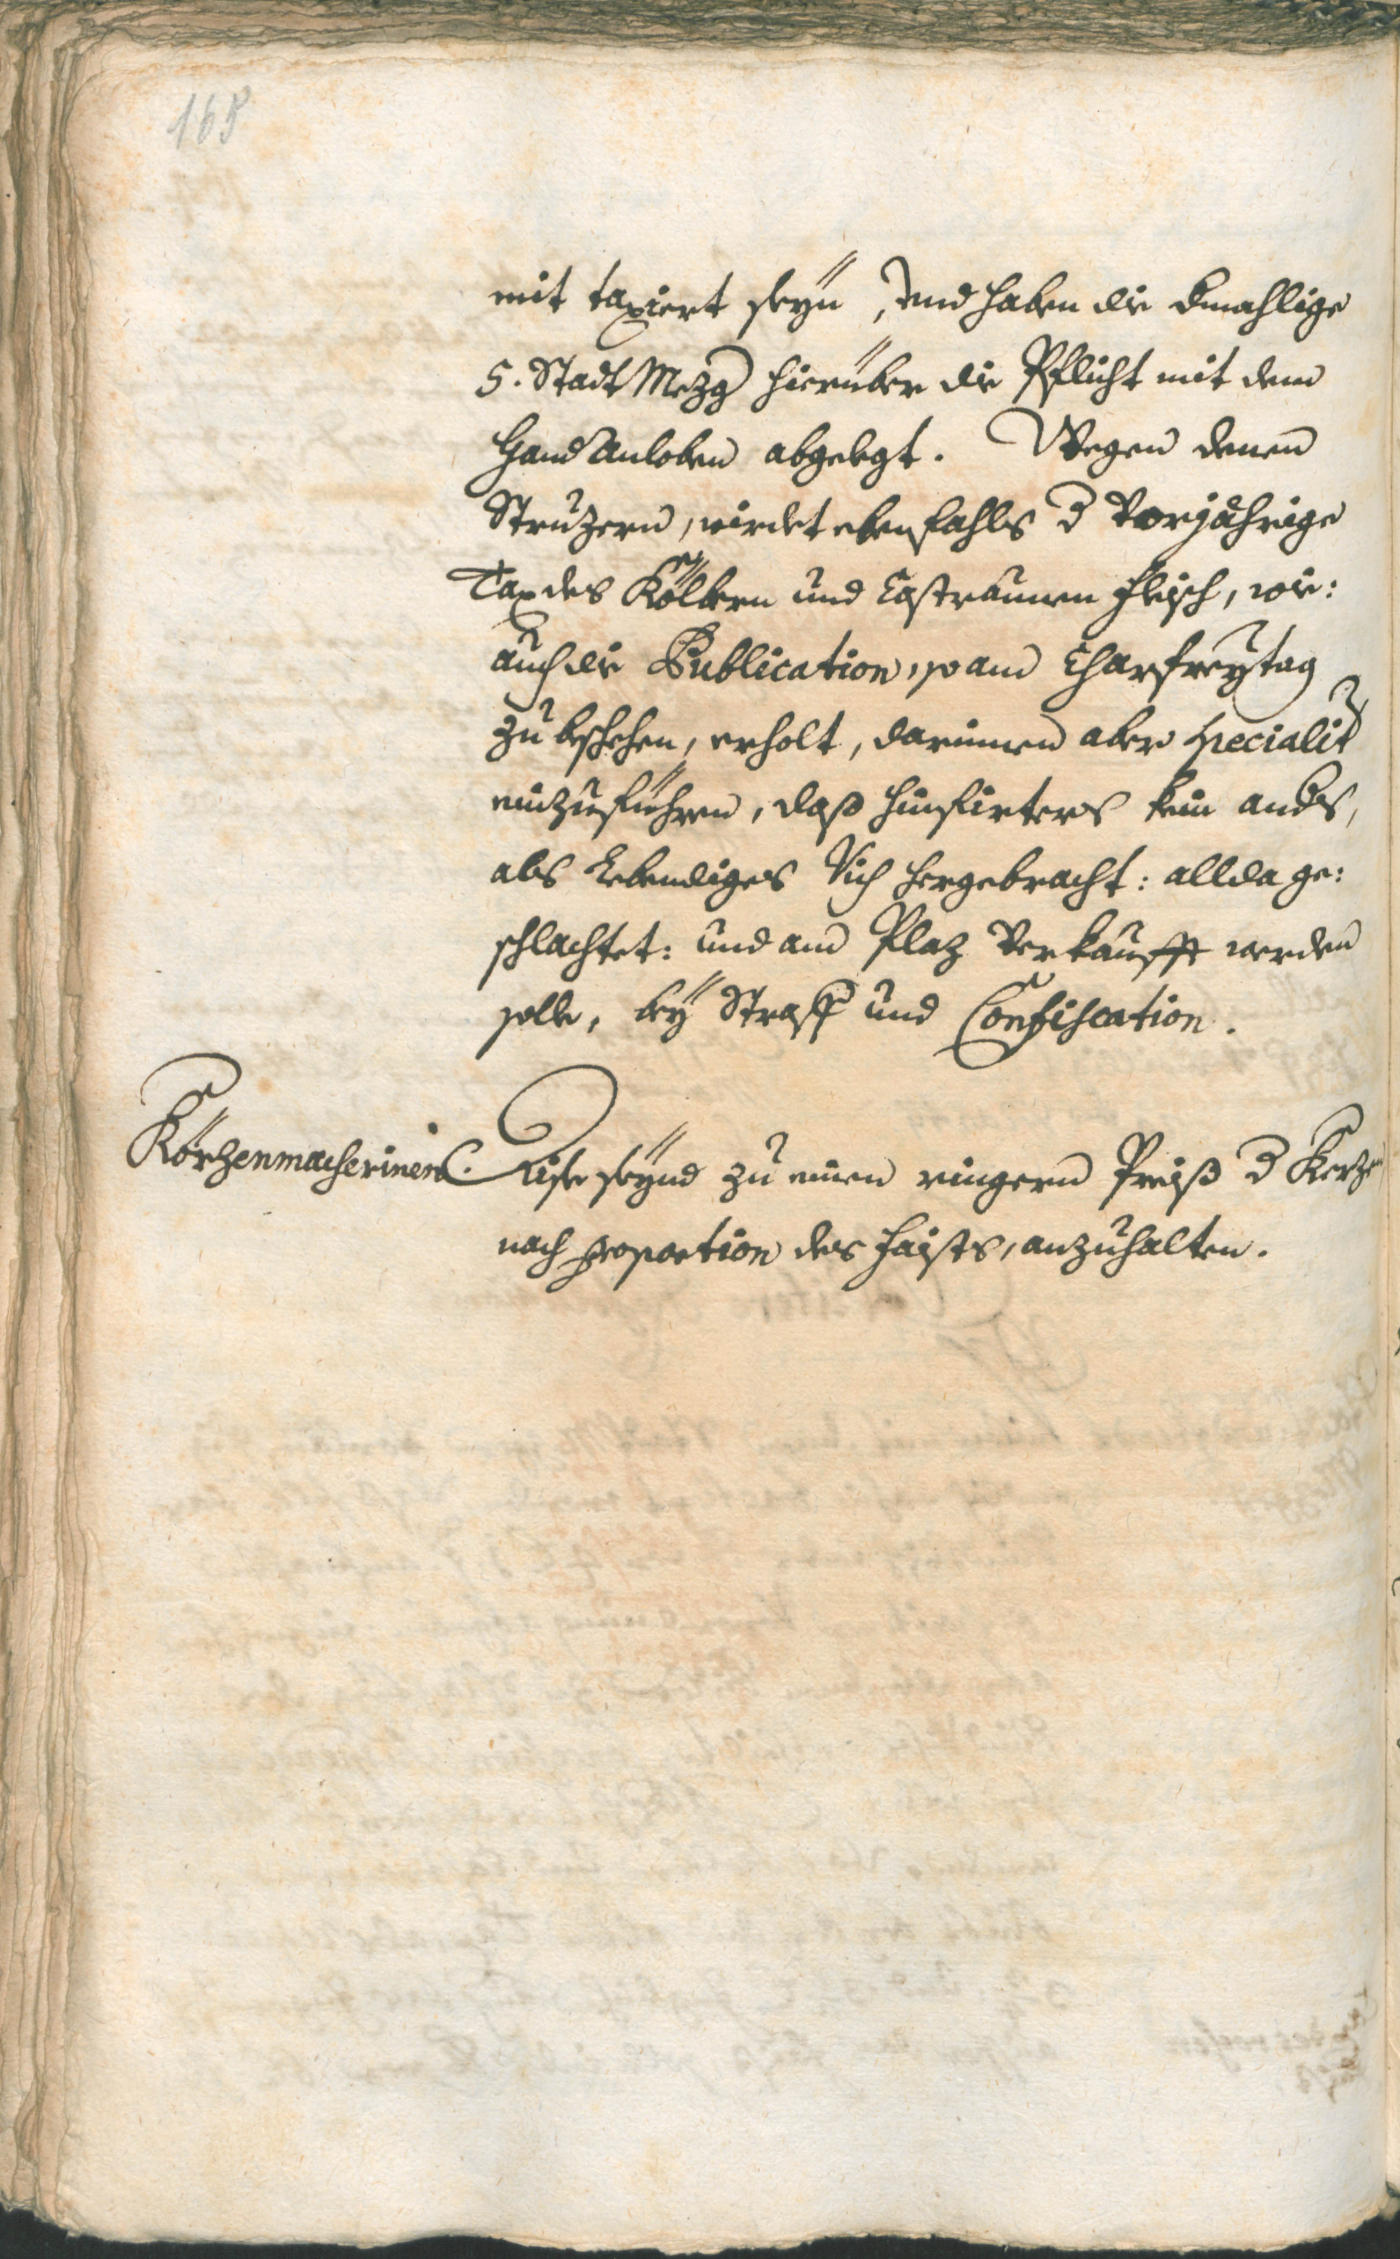 168
mit taxiert seÿn, und haben die dmahlige
5. Stadt Mezg hierüber die Pflicht mit dem
Hand Anloben abgelegt. Wegen denen
Struzern, wirdet ebenfahls d vorjährige
Tax des Kölbern und Castraunen fleisch, wie:
auch die Publication, so am Charfreÿtag
zu beschehen, erholt, darinnen aber specialit
einzuführen, daß hinfirters kein anders,
als Lebendiges Vich hergebracht: allda ge:
schlachtet: und am Plaz verkaufft werden
solle, beÿ Straff und Confiscation.
Körzenmacherinen.
Dise seÿnd zu einen ringern Preiß d Kerzen
nach proportion des faists, anzuhalten.